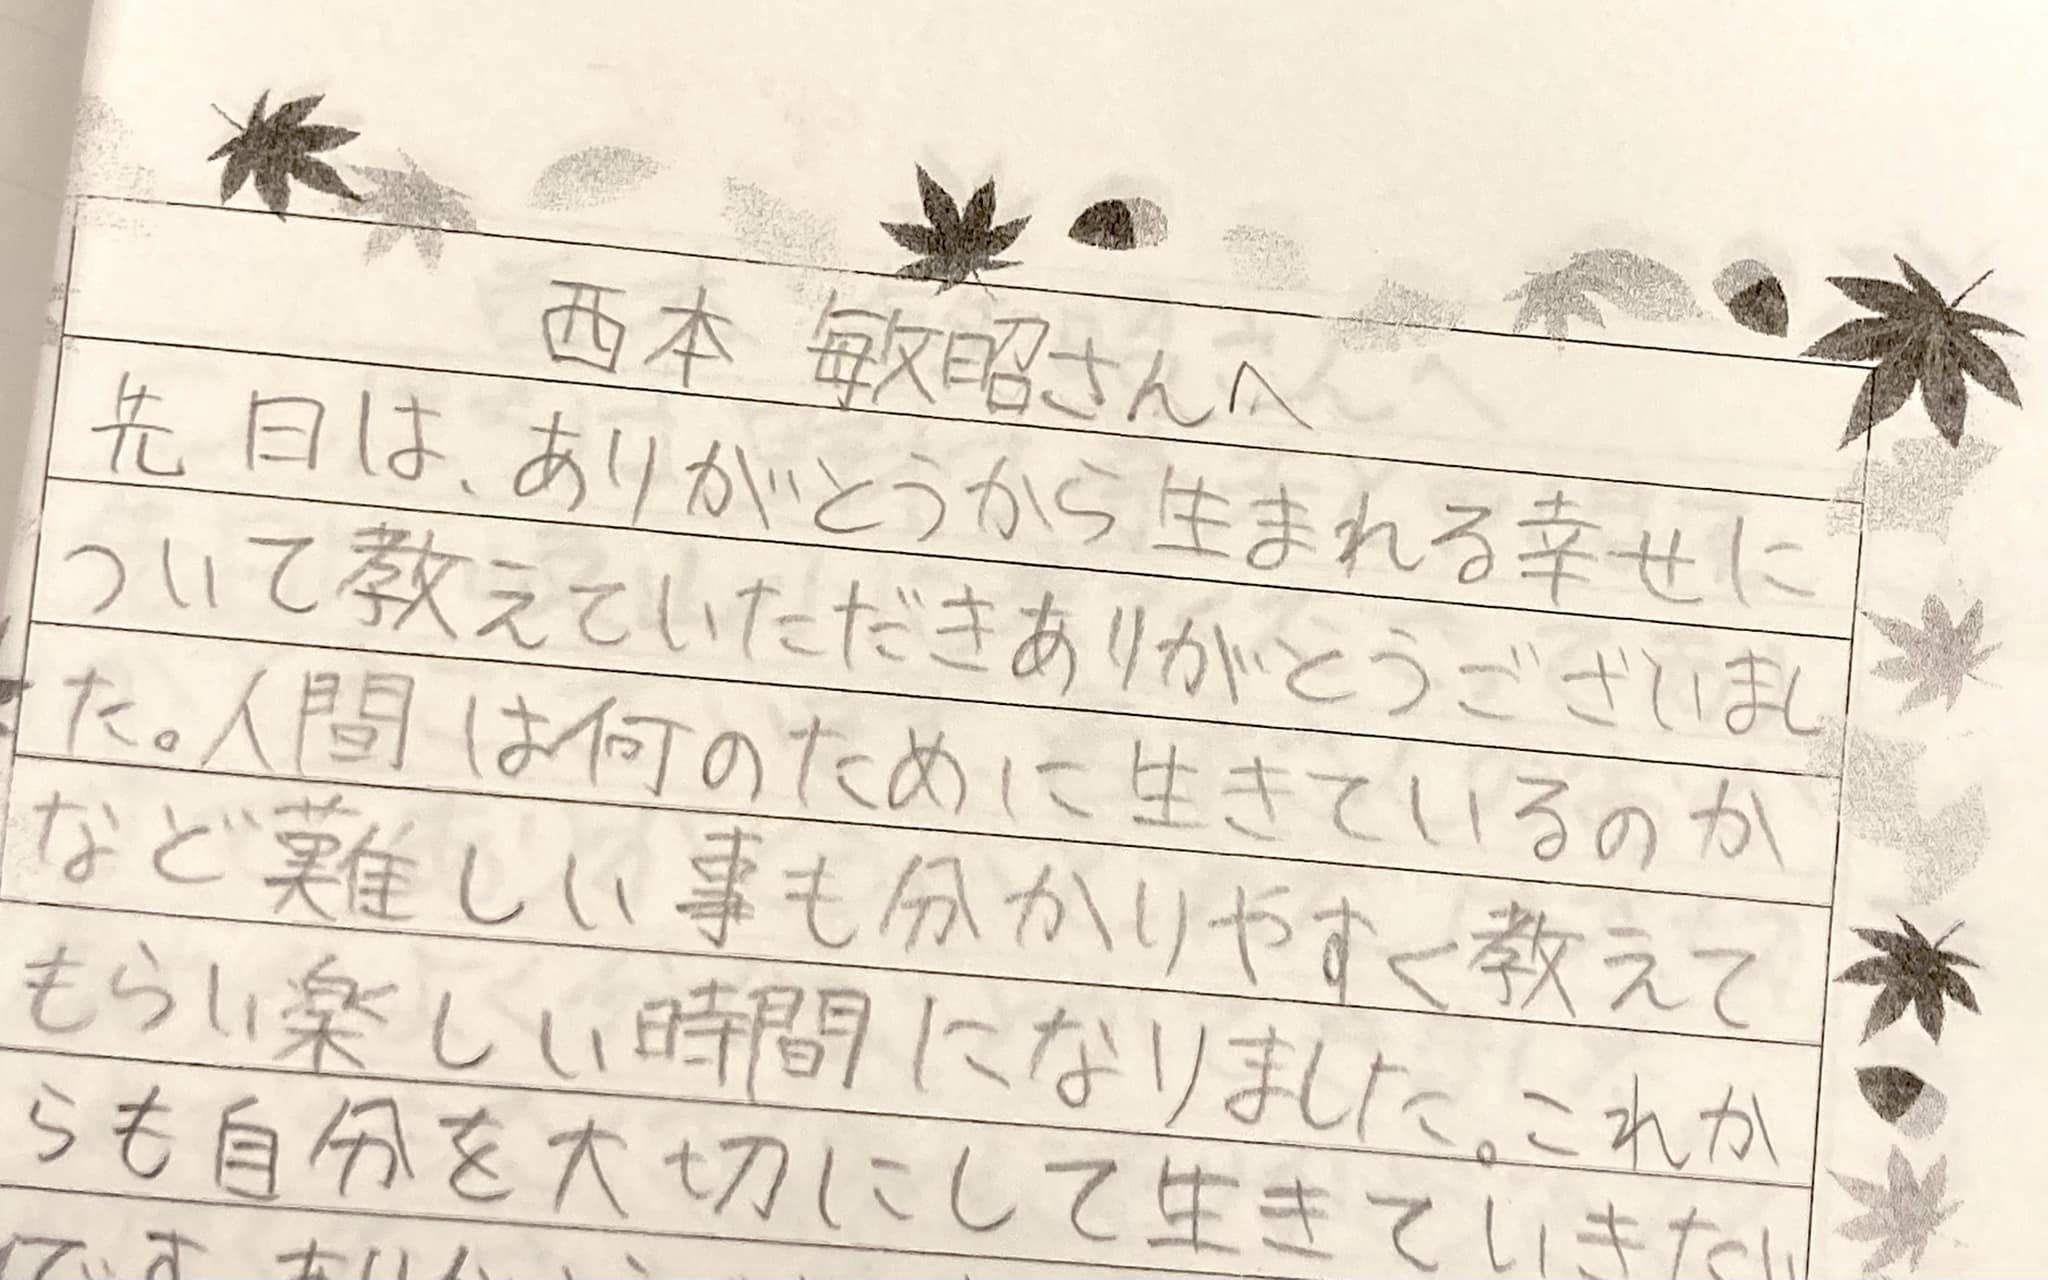 西本 敏昭さんへ
先日は、ありがとうから生まれる幸せに
ついて教えていただきありがとうございまし
た。人間は何のために生きているのか
など難しい事も分かりやすく教えて
もらい楽しい時間になりました。これか
らも自分を大切にして生きていきたい
です